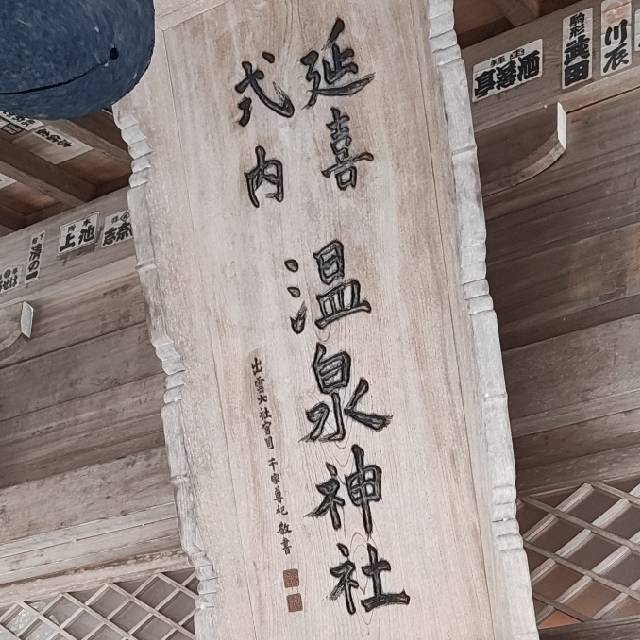 延喜
式内
温泉神社
出雲大社宮司 千家尊祀 敬書
武田
川辰
上池